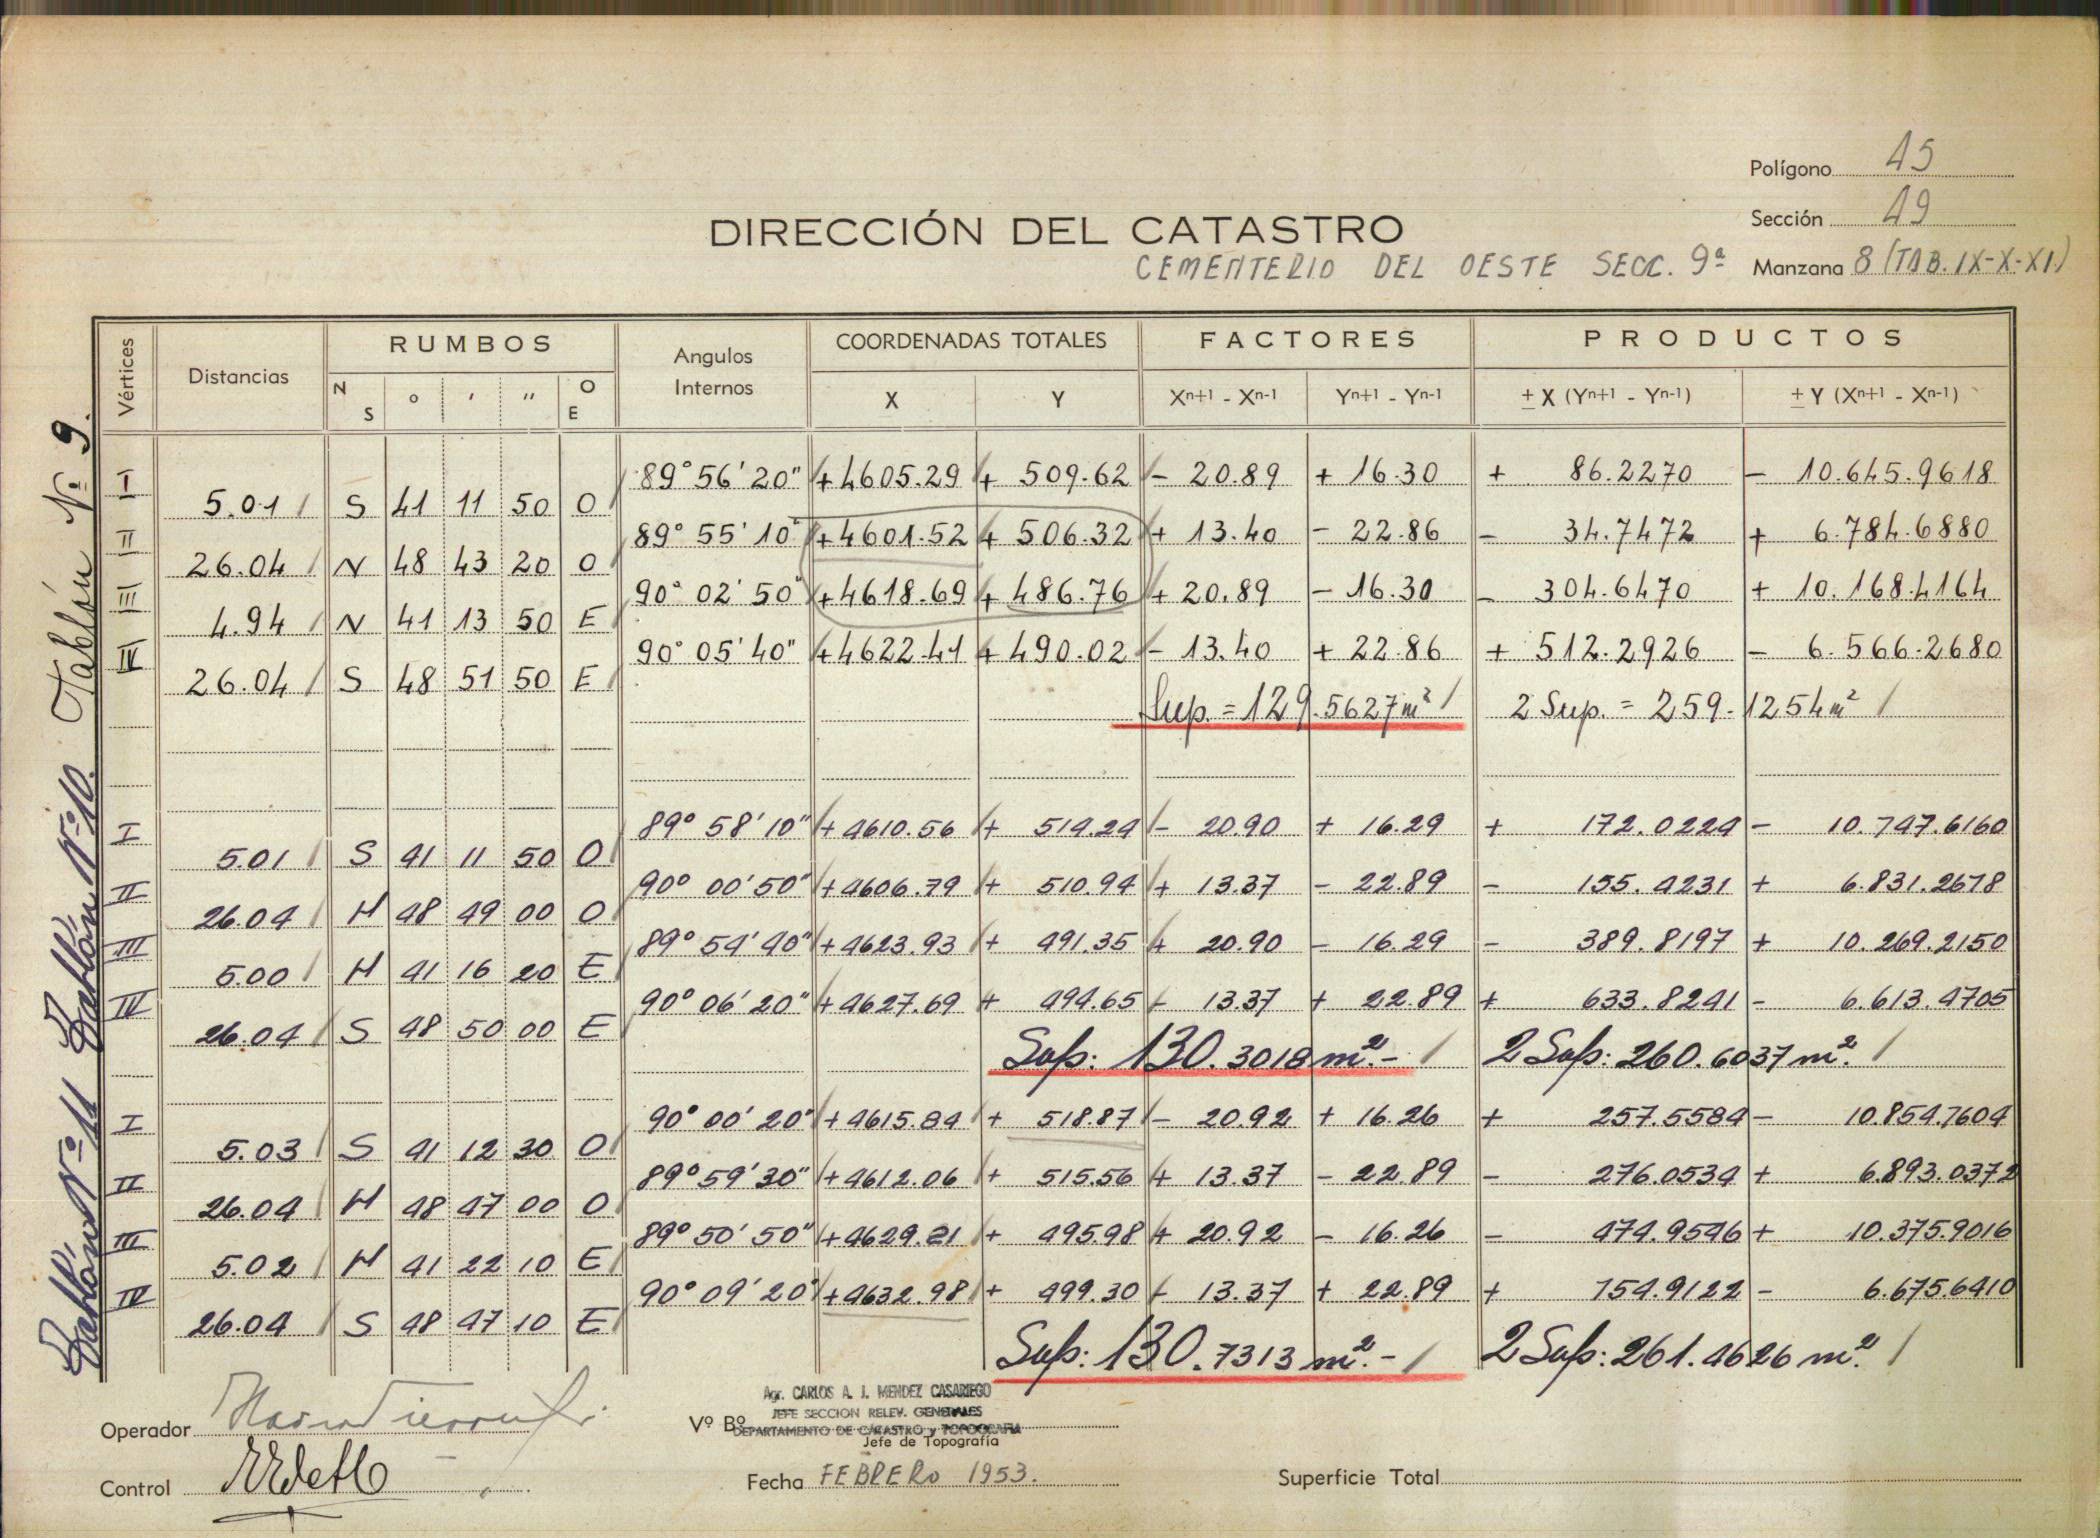 Polígono 45
Sección 49
DIRECCIÓN DEL CATASTRO
CEMENTERIO DEL OESTE SECC. 9ª Manzana 8 (TAB. IX-X-XI)
Vértices Distancias RUMBOS Angulos Internos COORDENADAS TOTALES FACTORES PRODUCTOS
N S ° ' " O E X Y Xn+1 - Xn-1 Yn+1 - Yn-1 ± X (Yn+1 - Yn-1) ± Y (Xn+1 - Xn-1)
Tablón Nº 9.
I 89° 56' 20" +4605.29 + 509.62 - 20.89 + 16.30 + 86.2270 - 10.645.9618
5.01 S 41 11 50 O
II 89° 55' 10" +4601.52 + 506.32 + 13.40 - 22.86 - 34.7472 + 6.784.6880
26.04 N 48 43 20 O
III 90° 02' 50" +4618.69 + 486.76 + 20.89 - 16.30 - 304.6470 + 10.168.4164
4.94 N 41 13 50 E
IV 90° 05' 40" +4622.41 + 490.02 - 13.40 + 22.86 + 512.2926 - 6.566.2680
26.04 S 48 51 50 E
Sup. = 129.5627 m² 2 Sup. = 259.1254 m²
Tablón Nº 10.
I 89° 58' 10" +4610.56 + 514.24 - 20.90 + 16.29 + 172.0224 - 10.747.6160
5.01 S 41 11 50 O
II 90° 00' 50" +4606.79 + 510.94 + 13.37 - 22.89 - 155.4231 + 6.831.2678
26.04 N 48 49 00 O
III 89° 54' 40" +4623.93 + 491.35 + 20.90 - 16.29 - 389.8197 + 10.269.2150
5.00 N 41 16 20 E
IV 90° 06' 20" +4627.69 + 494.65 - 13.37 + 22.89 + 633.8241 - 6.613.4705
26.04 S 48 50 00 E
Sup: 130.3018 m².- 2 Sup: 260.6037 m².
Tablón Nº 11
I 90° 00' 20" +4615.84 + 518.87 - 20.92 + 16.26 + 257.5584 - 10.854.7604
5.03 S 41 12 30 O
II 89° 59' 30" +4612.06 + 515.56 + 13.37 - 22.89 - 276.0534 + 6.893.0372
26.04 N 48 47 00 O
III 89° 50' 50" +4629.21 + 495.98 + 20.92 - 16.26 - 474.9546 + 10.375.9016
5.02 N 41 22 10 E
IV 90° 09' 20" +4632.98 + 499.30 - 13.37 + 22.89 + 754.9122 - 6.675.6410
26.04 S 48 47 10 E
Sup: 130.7313 m².- 2 Sup: 261.4626 m².
Agr. CARLOS A. J. MENDEZ CASARIEGO
JEFE SECCION RELEV. GENERALES
Operador Vº Bº DEPARTAMENTO DE CATASTRO y TOPOGRAFIA
Jefe de Topografía
Control Fecha FEBRERO 1953. Superficie Total